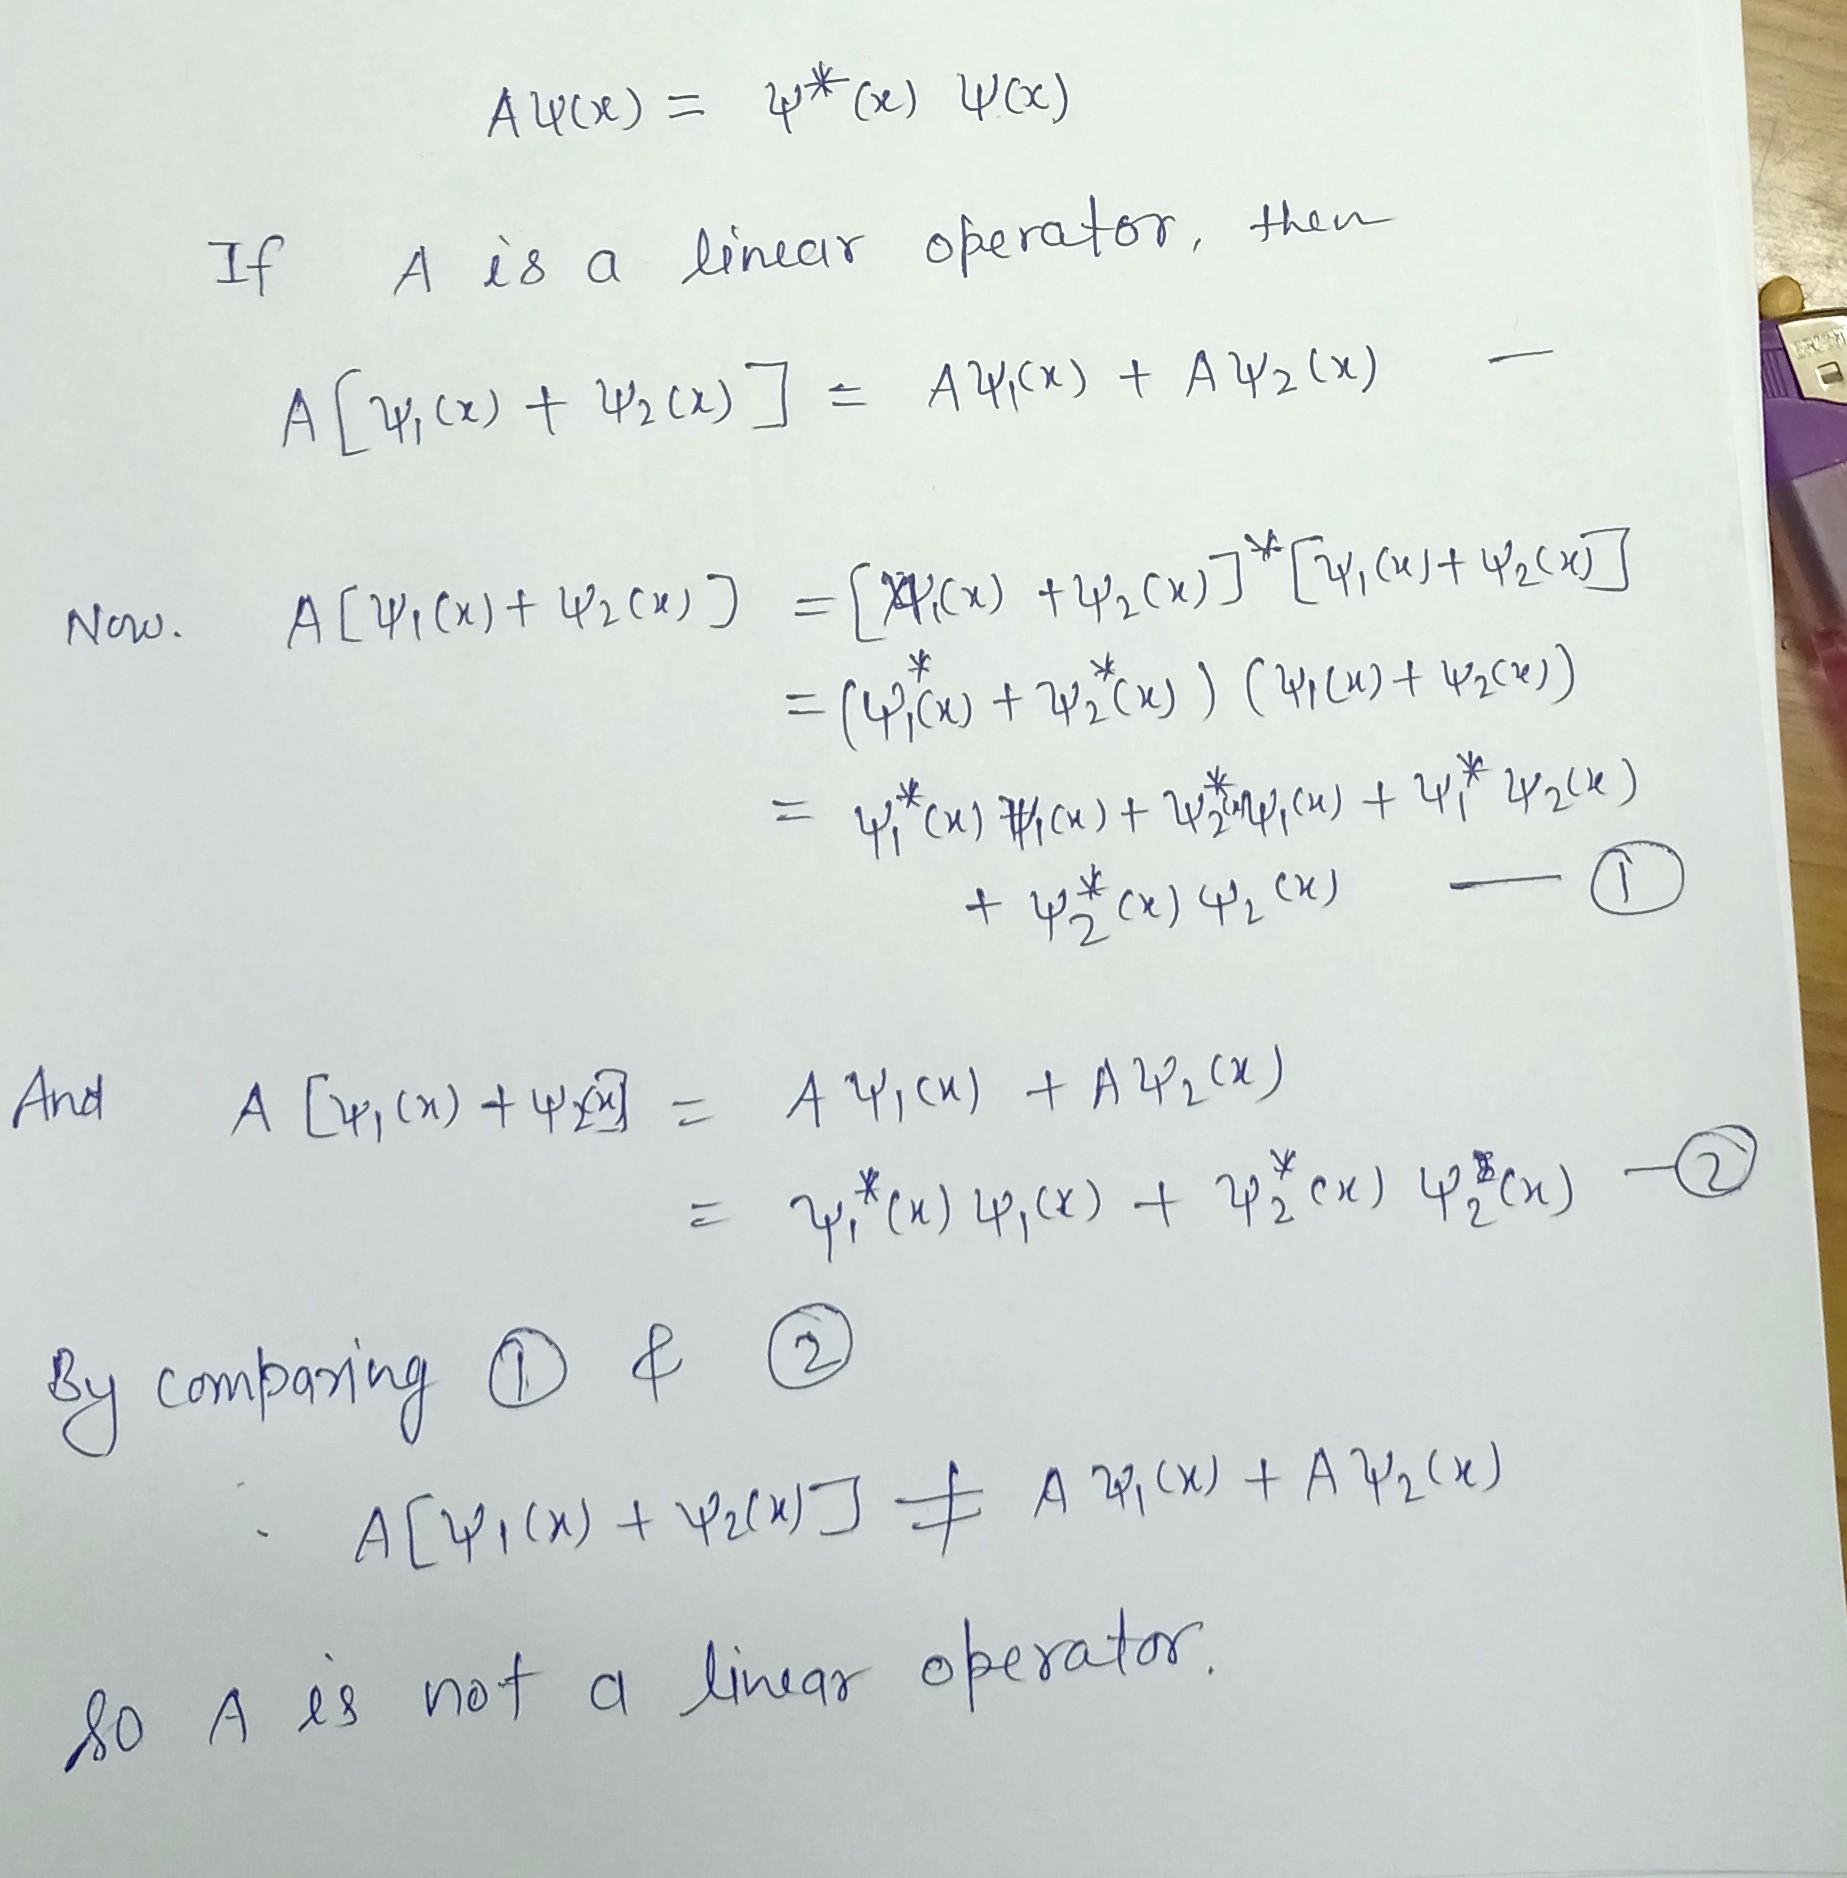 Aψ(x) = ψ*(x) ψ(x)
If A is a linear operator, then
A[ψ₁(x) + ψ₂(x)] = Aψ₁(x) + Aψ₂(x) —
Now. A[ψ₁(x) + ψ₂(x)] = [ψ₁(x) + ψ₂(x)]* [ψ₁(x) + ψ₂(x)]
= (ψ₁*(x) + ψ₂*(x)) (ψ₁(x) + ψ₂(x))
= ψ₁*(x) ψ₁(x) + ψ₂*(x) ψ₁(x) + ψ₁* ψ₂(x)
+ ψ₂*(x) ψ₂(x) — ①
And A[ψ₁(x) + ψ₂(x)] = Aψ₁(x) + Aψ₂(x)
= ψ₁*(x) ψ₁(x) + ψ₂*(x) ψ₂(x) — ②
By comparing ① & ②
∴ A[ψ₁(x) + ψ₂(x)] ≠ Aψ₁(x) + Aψ₂(x)
So A is not a linear operator.